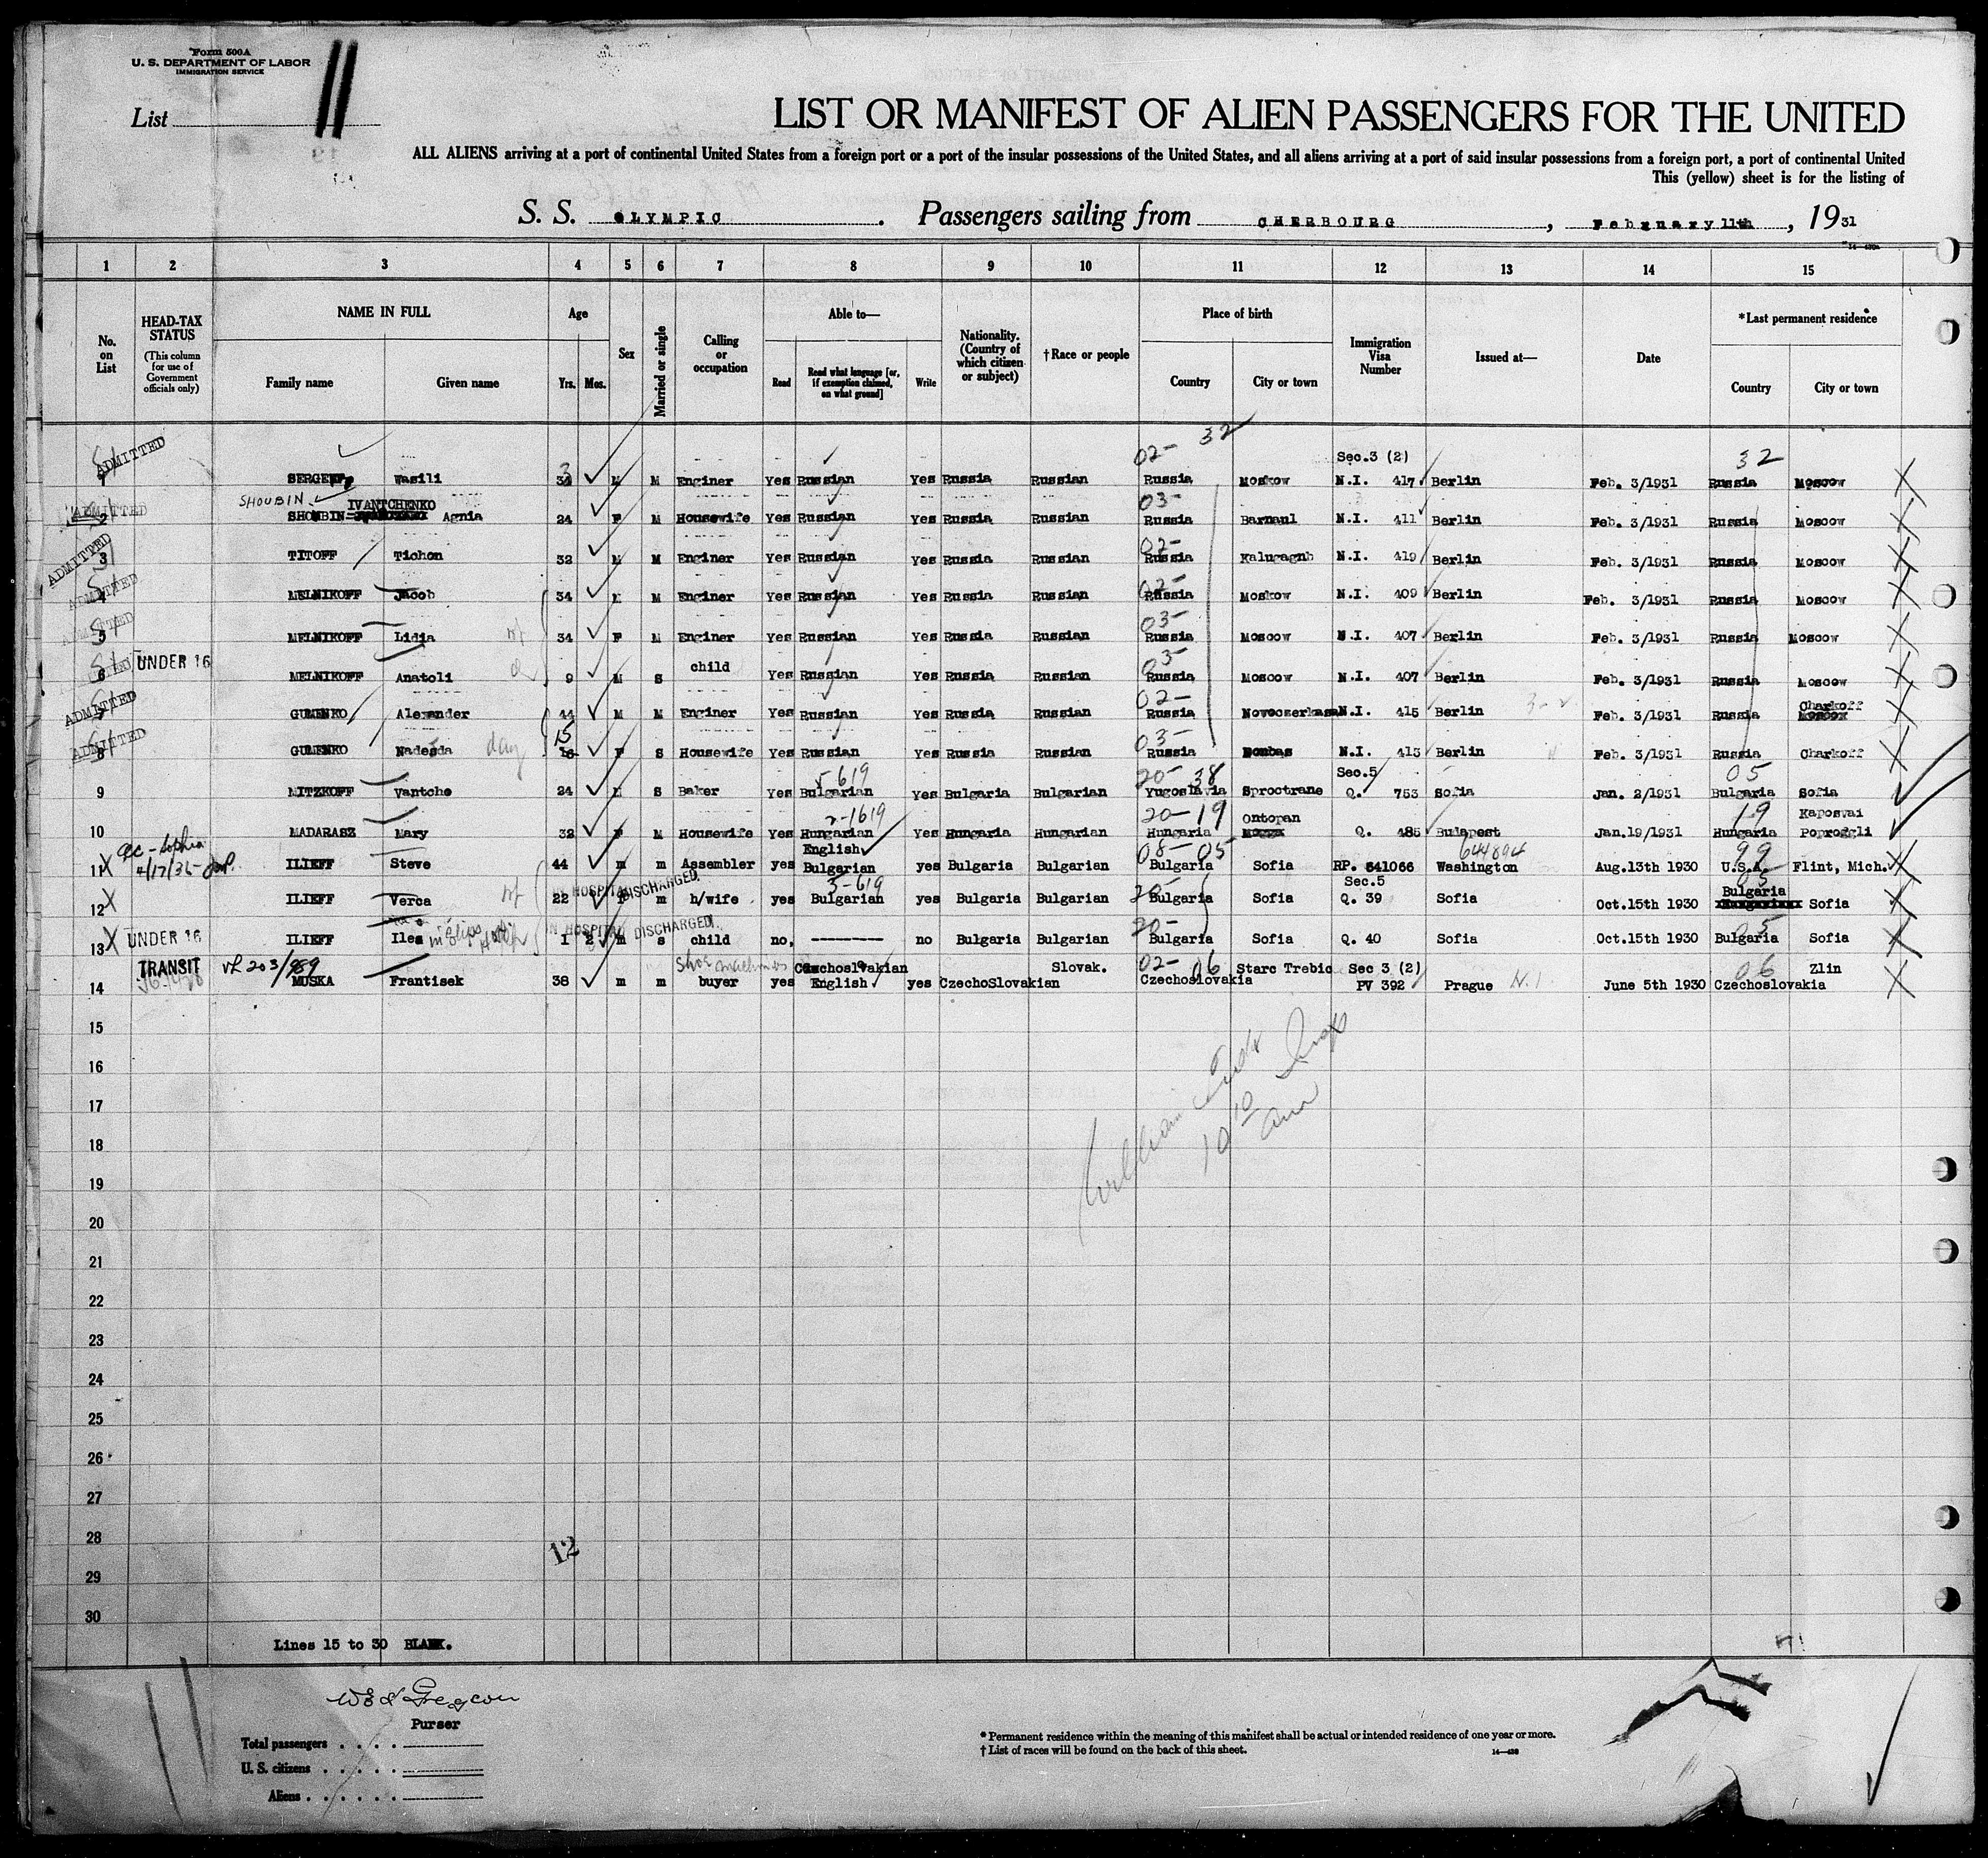 Form 500A
U. S. DEPARTMENT OF LABOR
IMMIGRATION SERVICE
List 11
LIST OR MANIFEST OF ALIEN PASSENGERS FOR THE UNITED
ALL ALIENS arriving at a port of continental United States from a foreign port or a port of the insular possessions of the United States, and all aliens arriving at a port of said insular possessions from a foreign port, a port of continental United
This (yellow) sheet is for the listing of
S. S. OLYMPIC. Passengers sailing from CHERBOURG, February 11th, 1931
1 2 3 4 5 6 7 8 9 10 11 12 13 14 15
No. on List
HEAD-TAX STATUS (This column for use of Government officials only)
NAME IN FULL Family name Given name
Age Yrs. Mos.
Sex
Married or single
Calling or occupation
Able to— Read Read what language [or, if exemption claimed, on what ground] Write
Nationality. (Country of which citizen or subject)
†Race or people
Place of birth Country City or town
Immigration Visa Number
Issued at—
Date
*Last permanent residence Country City or town
02- 32 Sec.3 (2) 32
ADMITTED 1 SERGEFF, Wasili 33 M M Enginer Yes Russian Yes Russia Russian Russia Moskow N.I. 417 Berlin Feb. 3/1931 Russia Moscow
SHOUBIN IVANTCHENKO 03-
ADMITTED 2 SHOUBIN Agnia 24 F M Housewife Yes Russian Yes Russia Russian Russia Barnaul N.I. 411 Berlin Feb. 3/1931 Russia Moscow
02-
ADMITTED 3 TITOFF Tichon 32 M M Enginer Yes Russian Yes Russia Russian Russia Kalugagnb N.I. 419 Berlin Feb. 3/1931 Russia Moscow
02-
ADMITTED 4 MELNIKOFF Jacob 34 M M Enginer Yes Russian Yes Russia Russian Russia Moskow N.I. 409 Berlin Feb. 3/1931 Russia Moscow
03-
ADMITTED 5 MELNIKOFF Lidia wf 34 F M Enginer Yes Russian Yes Russia Russian Russia Moscow N.I. 407 Berlin Feb. 3/1931 Russia Moscow
03-
6 UNDER 16 MELNIKOFF Anatoli 9 M S child Yes Russian Yes Russia Russian Russia Moscow N.I. 407 Berlin Feb. 3/1931 Russia Moscow
02- Charkoff
ADMITTED 7 GULENKO Alexander 44 M M Enginer Yes Russian Yes Russia Russian Russia Novoczerkasa N.I. 415 Berlin Feb. 3/1931 Russia Moscow
15 03-
ADMITTED 8 GULENKO Nadesda dau F S Housewife Yes Russian Yes Russia Russian Russia Dombas N.I. 413 Berlin Feb. 3/1931 Russia Charkoff
5-619 20- 38 Sec.5 05
9 MITZKOFF Vantcho 24 M S Baker Yes Bulgarian Yes Bulgaria Bulgarian Yugoslavia Sproctrane Q. 753 Sofia Jan. 2/1931 Bulgaria Sofia
2-1619 20-19 Ontopan 19 Kaposvai
10 MADARASZ Mary 32 F M Housewife Yes Hungarian Yes Hungaria Hungarian Hungaria Q. 485 Budapest Jan.19/1931 Hungaria
English 08-05 644894 99
11 4/17/35 ILIEFF Steve 44 m m Assembler yes Bulgarian yes Bulgaria Bulgarian Bulgaria Sofia RP. 641066 Washington Aug.13th 1930 U.S.A. Flint, Mich.
IN HOSPITAL DISCHARGED. 3-619 20- Sec.5 05 Bulgaria
12 ILIEFF Verca wf 22 F m h/wife yes Bulgarian yes Bulgaria Bulgarian Bulgaria Sofia Q. 39 Sofia Oct.15th 1930 Sofia
IN HOSPITAL DISCHARGED. 20- 05
13 UNDER 16 ILIEFF Ilea 1 2 m s child no, --------- no Bulgaria Bulgarian Bulgaria Sofia Q. 40 Sofia Oct.15th 1930 Bulgaria Sofia
TRANSIT 203/989 Czechoslvakian Slovak. 02- 06 Starc Trebic Sec 3 (2) 06 Zlin
14 MUSKA Frantisek 38 m m buyer yes English yes CzechoSlovakian Czechoslovakia PV 392 Prague N.I. June 5th 1930 Czechoslovakia
15
16
17
18
19
20
21
22
23
24
25
26
27
28
29
30
12
Lines 15 to 30 BLANK.
Purser
Total passengers
U. S. citizens
Aliens
* Permanent residence within the meaning of this manifest shall be actual or intended residence of one year or more.
† List of races will be found on the back of this sheet.